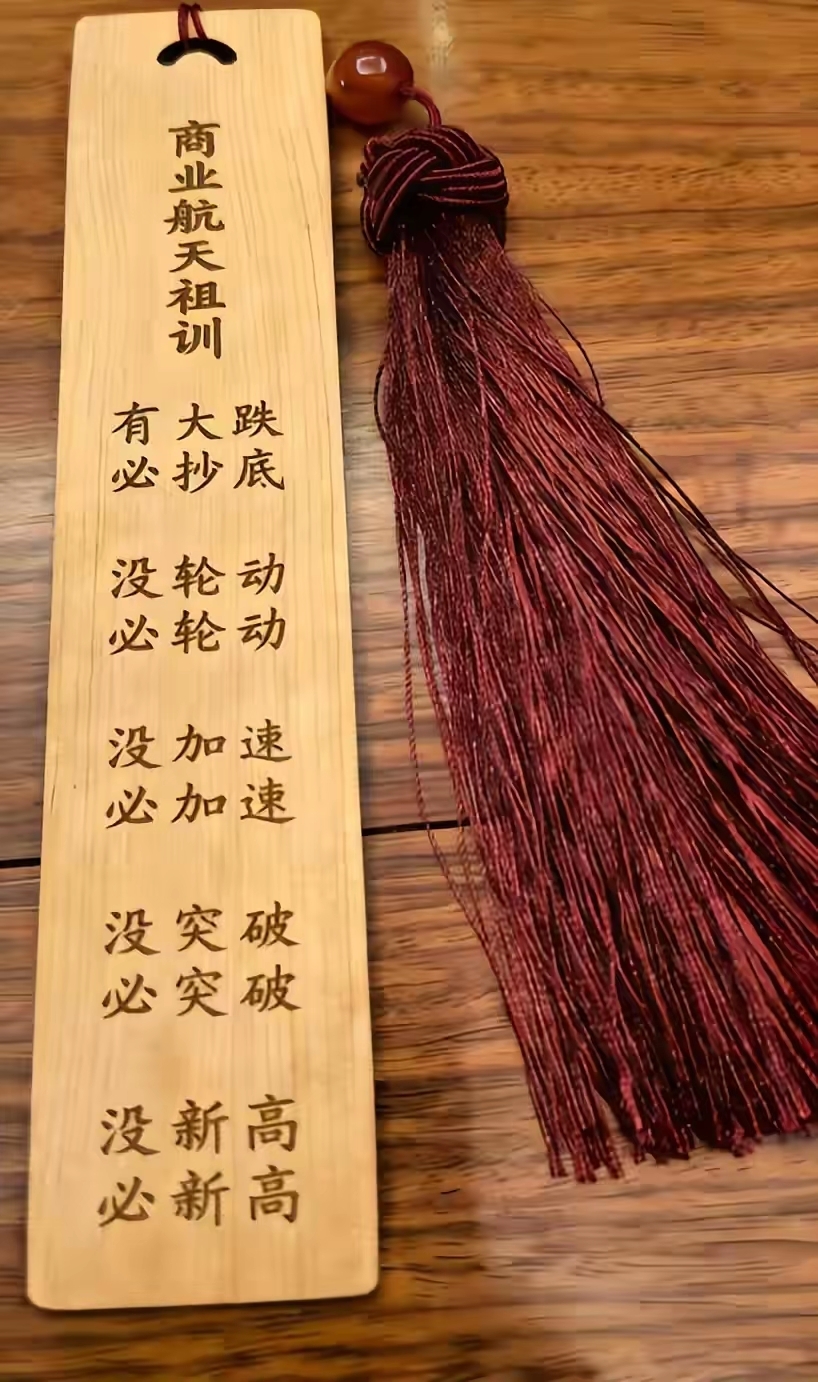 商业航天祖训
有大跌
必抄底
没轮动
必轮动
没加速
必加速
没突破
必突破
没新高
必新高